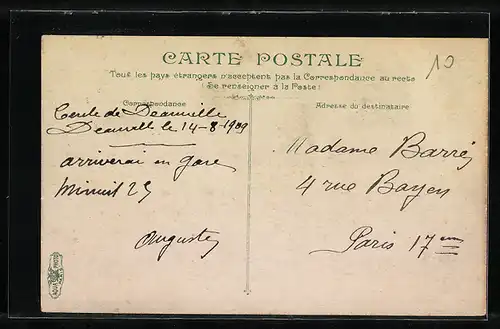 10
CARTE POSTALE
Tous les pays étrangers n'acceptent pas la Correspondance au recto
(Se renseigner à la Poste)
Correspondance
Cercle de Deauville
Deauville le 14-8-1909
arriverai en gare
Minuit 25
Auguste
Adresse du destinataire
Madame Barrés
4 rue Bayen
Paris 17em